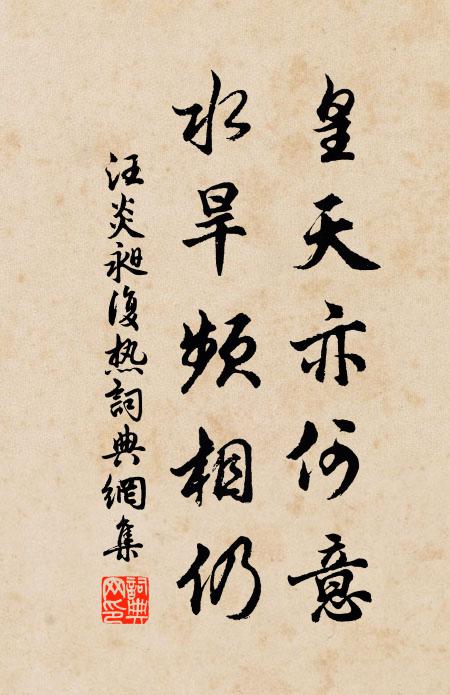 皇天亦何意
水旱頻相仍
汪炎昶復热詞典網集
詞典网印